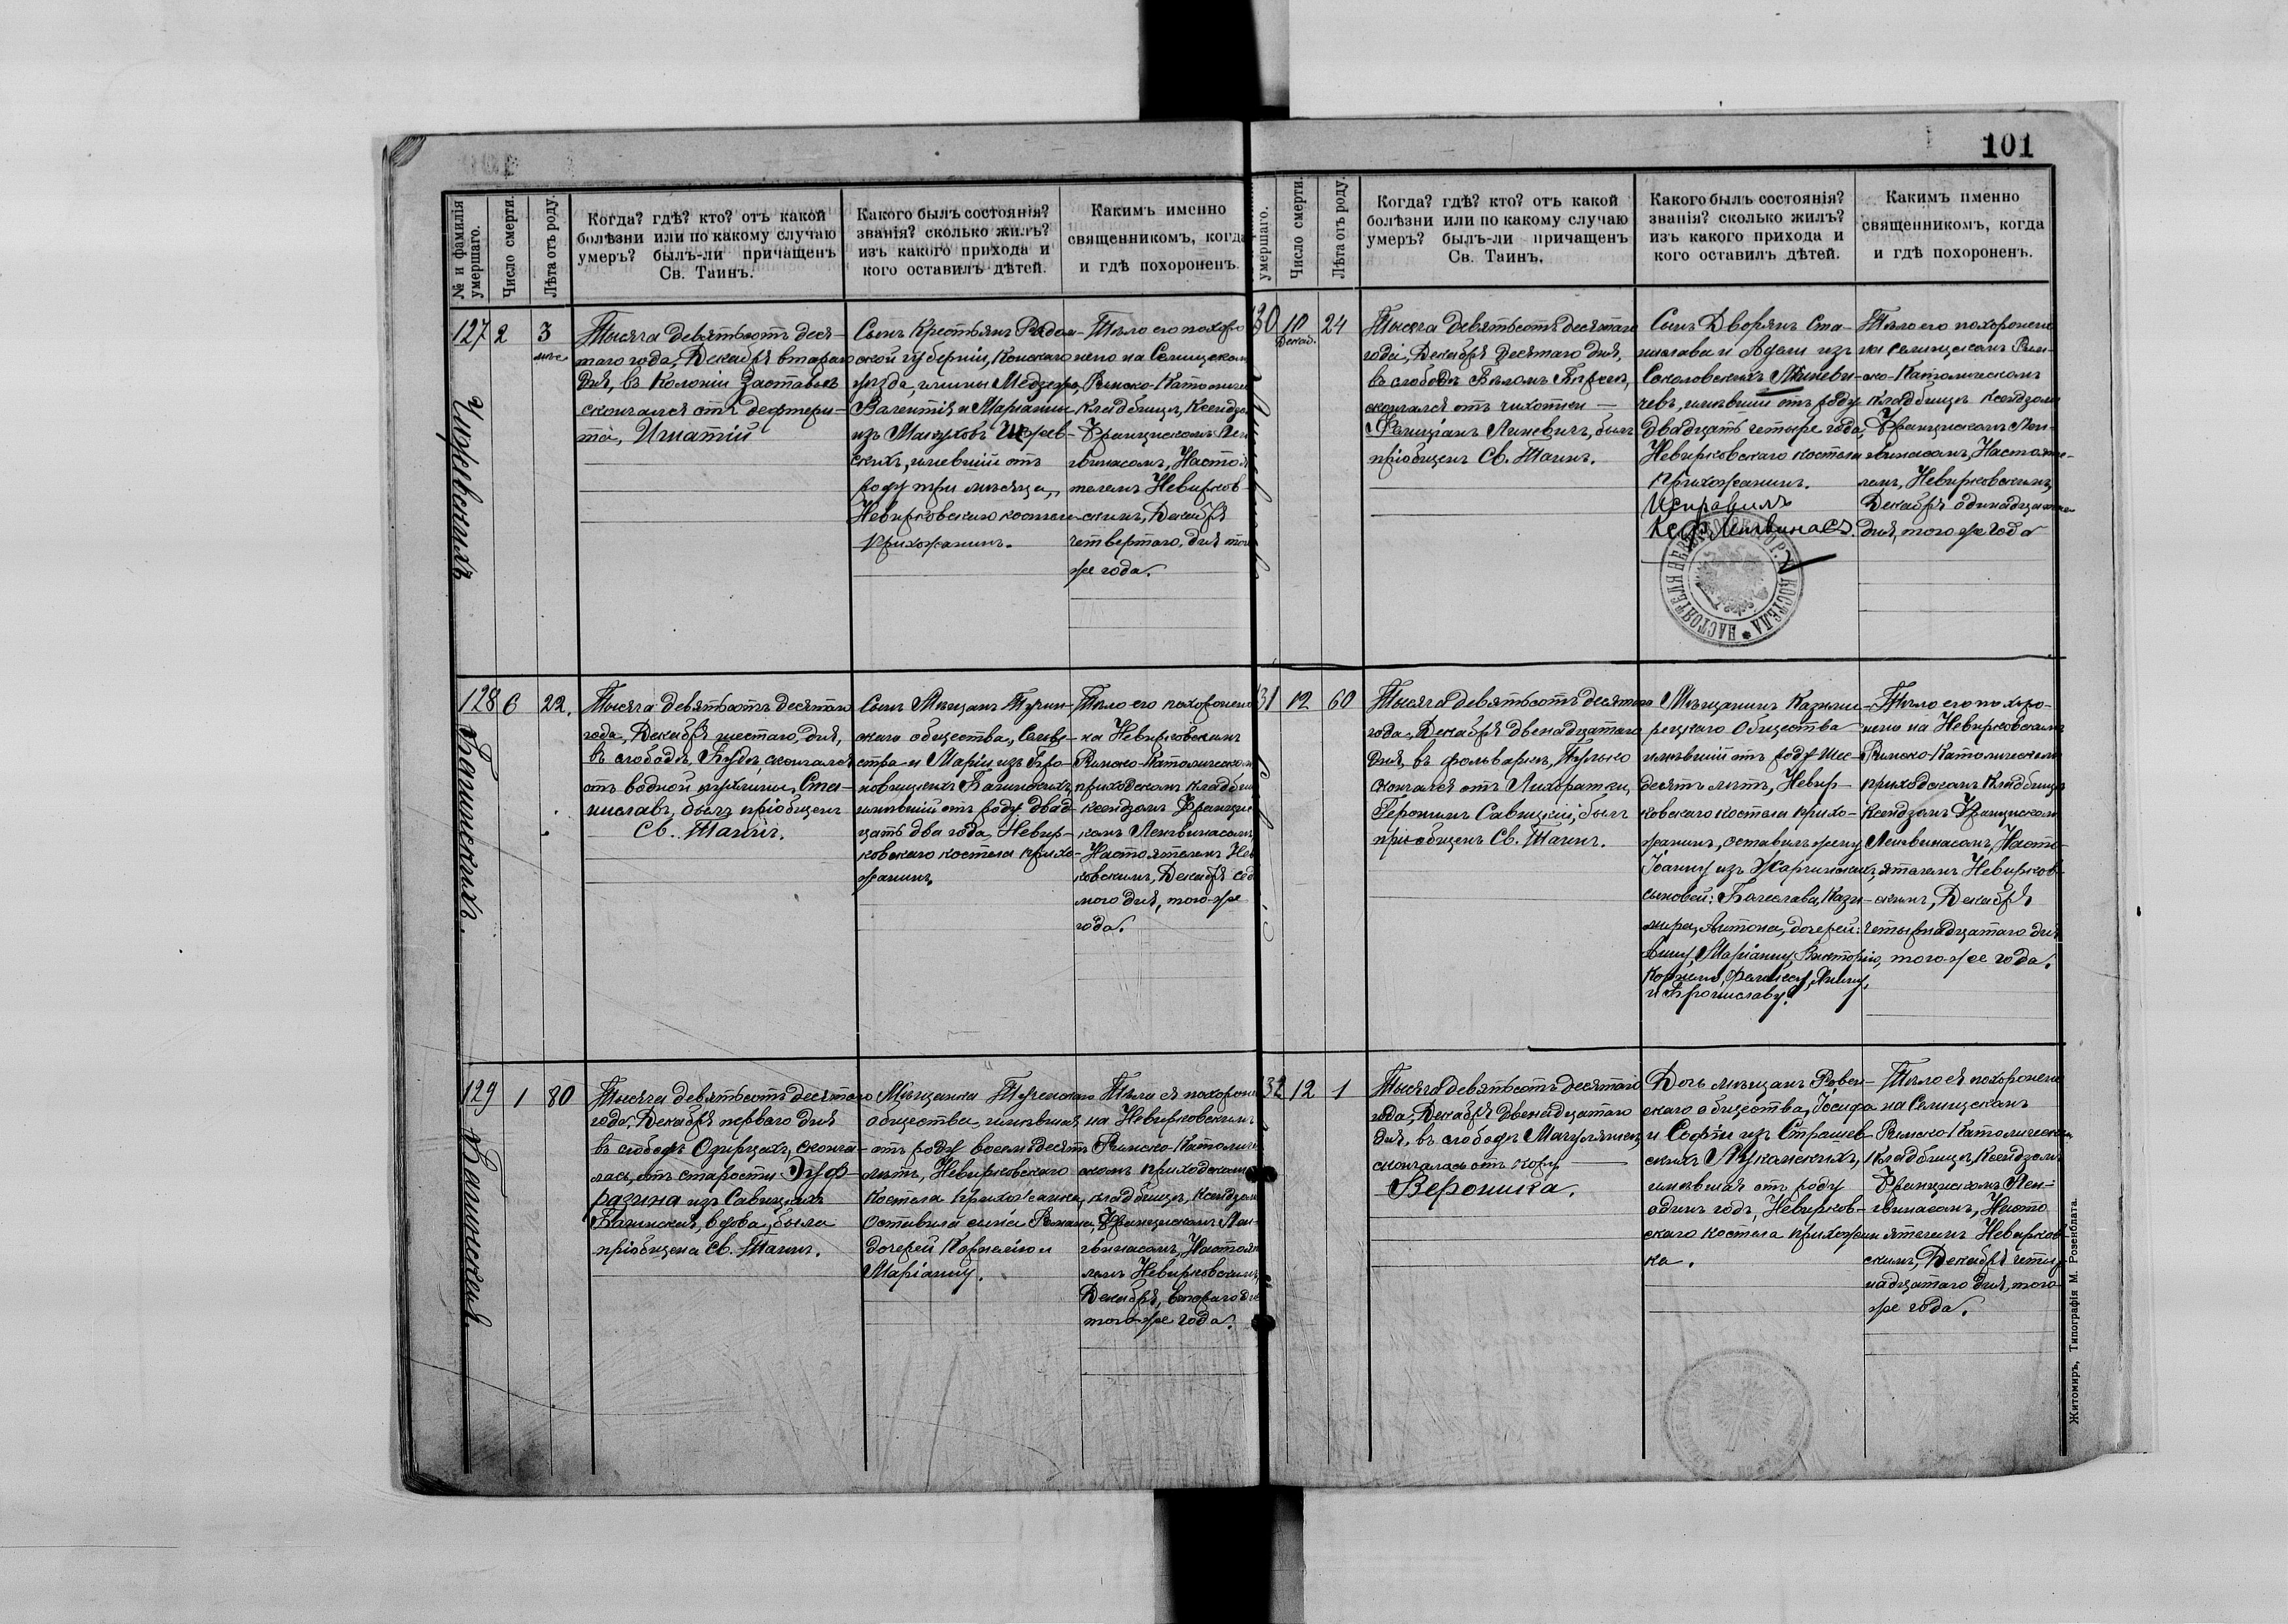 101
№ и фамилія умершаго.
Число смерти.
Лѣта отъ роду.
Когда? гдѣ? кто? отъ какой
болѣзни или по какому случаю
умеръ? былъ-ли причащенъ
Св. Таинъ.
Какого былъ состоянія?
званія? сколько жилъ?
изъ какого прихода и
кого оставилъ дѣтей.
Какимъ именно
священникомъ, когда
и гдѣ похороненъ.
127
2
3
Тысяча девятьсотъ деся-
таго года, Декабря втораго
дня, въ Колоніи Заставье
скончался отъ дефтери-
та, Игнатій
Сынъ Крестьянъ Радом-
ской губерніи, Конскаго
уѣзда, гмины
Валентія и Маріанны
изъ
скихъ, имевшій отъ
роду три мѣсяца,
Невирковскаго костела
прихожанинъ.
Тѣло его похоро
нено на Селищском
Римско-Католиче
Кладбищѣ, Ксендзо
Францискомъ Лен
гвинасомъ, Настоя
телемъ Невирков
скимъ, Декабря
четвертаго, дня того
же года.
128
6
22.
Багинскихъ.
Тысяча девятьсотъ десятаго
года, Декабря шестаго, дня,
въ слободѣ, Будѣ, скончался
отъ водной пухлины, Ста-
ниславъ, былъ пріобщенъ
Св. Таинъ.
Сынъ Мѣщанъ Тучин-
скаго общества, Сильве-
стра и Маріи изъ Бро-
новицкихъ Багинскихъ,
имѣвшій отъ роду двад-
цать два года, Невир-
ковскаго костела прихо-
жанинъ.
Тѣло его похоронено
на Невирковскимъ
Римско-Католическом
приходскомъ кладби
ксендзомъ Францис
комъ Ленгвинасомъ
Настоятелемъ Нев
ковскимъ, Декабря сед
мого дня, того-же
года.
129
1
80
Багинская
Тысяча девятьсотъ десятаго
года, Декабря перваго дня
въ слободѣ скончa-
лась, отъ старости Эуф-
разина изъ Савицкихъ
Багинская, вдова, была
пріобщена Св. Таинъ.
Мѣщанка Тучинскаго
общества, имѣвшая
отъ роду восемьдесятъ
лѣтъ, Невирковскаго
костела прихожанка,
Оставила сына Романа,
дочерей Корнелію и
Маріанну.
Тѣло ея похорон
на Невирковскимъ
Римско-Католиче
скомъ приходскомъ
кладбищѣ, Ксендзом
Францискомъ Лен-
гвинасомъ, Настоя
лемъ Невирковскимъ,
Декабря, втораго дня
того-же года.
умершаго.
Число смерти.
Лѣта отъ роду.
Когда? гдѣ? кто? отъ какой
болѣзни или по какому случаю
умеръ? былъ-ли причащенъ
Св. Таинъ.
Какого былъ состоянія?
званія? сколько жилъ?
изъ какого прихода и
кого оставилъ дѣтей.
Какимъ именно
священникомъ, когда
и гдѣ похороненъ.
30
10
Декаб.
24
Тысяча девятьсотъ десятаго
года, Декабря десятаго дня,
въ слободѣ Бѣломъ Берегѣ,
скончался отъ чихотки
Фелиціанъ Линевичъ, былъ
пріобщенъ Св. Таинъ.
Сынъ Дворянъ Ста-
нислава и Адели изъ
Соколовскихъ Линеви-
чевъ, имѣвшій отъ роду
двадцать четыре года,
Невирковскаго костела
прихожанинъ.
Исправилъ
Кс. Ф. Ленгвинасъ.
Тѣло его похоронено
на Селищскомъ Рим-
ско-Католическомъ
кладбищѣ Ксендзомъ
Францискомъ Лен-
гвинасомъ, Настояте-
лемъ, Невирковскимъ,
Декабря одинадцатаго
дня, того же года
31
12
60
Тысяча девятьсотъ десятаго
года, Декабря двенадцатаго
дня, въ фольваркѣ,
скончался отъ Лихорадки,
Геронимъ Савицкій, былъ
пріобщенъ Св. Таинъ.
Мѣщанинъ Казими-
рецкаго Общества
имѣвшій отъ роду шес-
десятъ лѣтъ, Невир-
ковскаго костела прихо-
жанинъ, оставилъ жену
Іоанну изъ
сыновей: Болеслава, Кази-
мира, Антона, дочерей:
Анну, Маріанну, Викторію,
Корнелію, Фелицію,
и Брониславу.
Тѣло его похоро-
нено на Невирковскимъ
Римско-Католическимъ
приходскомъ Кладбищѣ
Ксендзомъ Францискомъ
Ленгвинасомъ, Насто-
ятелемъ Невирков-
скимъ, Декабря
четырнадцатаго дня
того-же года.
32
12
1
Тысяча девятьсотъ десятаго
года, Декабря двенадцатаго
дня, въ слободѣ
скончалась отъ кору
Вероника.
Дочь мѣщанъ Ровен-
скаго общества, Іосифа
и Софіи изъ Страшев-
скихъ Лукомскихъ,
имѣвшая отъ роду
одинъ годъ, Невирков-
скаго костела прихожан
ка.
Тѣло ея похоронено
на Селищскомъ
Римско-Католическимъ
кладбищѣ, Ксендзомъ
Францискомъ Лен-
гвинасомъ, Насто
ятелемъ Невирков-
скимъ, Декабря четыр
надцатаго дня, того-
же года.
Житомиръ, Типографія М. Розенблата.